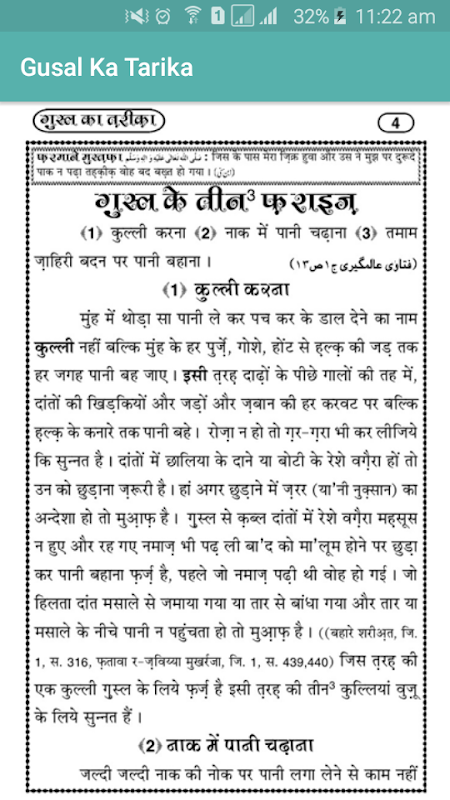 32% 11:22 am
Gusal Ka Tarika
गुस्ल का तरीक़ा
4
फ़रमाने मुस्तफ़ा صلى الله تعالى عليه واله وسلم : जिस के पास मेरा ज़िक्र हुवा और उस ने मुझ पर दुरूदे
पाक न पढ़ा तह्क़ीक़ वोह बद बख़्त हो गया ।
गुस्ल के तीन³ फ़राइज़
(1) कुल्ली करना (2) नाक में पानी चढ़ाना (3) तमाम
ज़ाहिरी बदन पर पानी बहाना । (فتاوی عالمگیری ج۱ ص۱۳)
(1) कुल्ली करना
मुंह में थोड़ा सा पानी ले कर पच कर के डाल देने का नाम
कुल्ली नहीं बल्कि मुंह के हर पुर्ज़े, गोशे, होंट से ह़ल्क़ की जड़ तक
हर जगह पानी बह जाए । इसी त़रह़ दाढ़ों के पीछे गालों की तह में,
दांतों की खिड़कियों और जड़ों और ज़बान की हर करवट पर बल्कि
ह़ल्क़ के कनारे तक पानी बहे । रोज़ा न हो तो ग़र-ग़रा भी कर लीजिये
कि सुन्नत है । दांतों में छालिया के दाने या बोटी के रेशे वग़ैरा हों तो
उन को छुड़ाना ज़रूरी है । हां अगर छुड़ाने में ज़रर (या'नी नुक़्सान) का
अन्देशा हो तो मुआ़फ़ है । ग़ुस्ल से क़ब्ल दांतों में रेशे वग़ैरा महसूस
न हुए और रह गए नमाज़ भी पढ़ ली बा'द को मा'लूम होने पर छुड़ा
कर पानी बहाना फ़र्ज़ है, पहले जो नमाज़ पढ़ी थी वोह हो गई । जो
हिलता दांत मसाले से जमाया गया या तार से बांधा गया और तार या
मसाले के नीचे पानी न पहुंचता हो तो मुआ़फ़ है । ((बहारे शरीअ़त, जि.
1, स. 316, फ़तावा र-ज़विय्या मुख़र्रजा, जि. 1, स. 439,440) जिस त़रह़ की
एक कुल्ली ग़ुस्ल के लिये फ़र्ज़ है इसी त़रह़ की तीन³ कुल्लियां वुज़ू
के लिये सुन्नत हैं ।
(2) नाक में पानी चढ़ाना
जल्दी जल्दी नाक की नोक पर पानी लगा लेने से काम नहीं